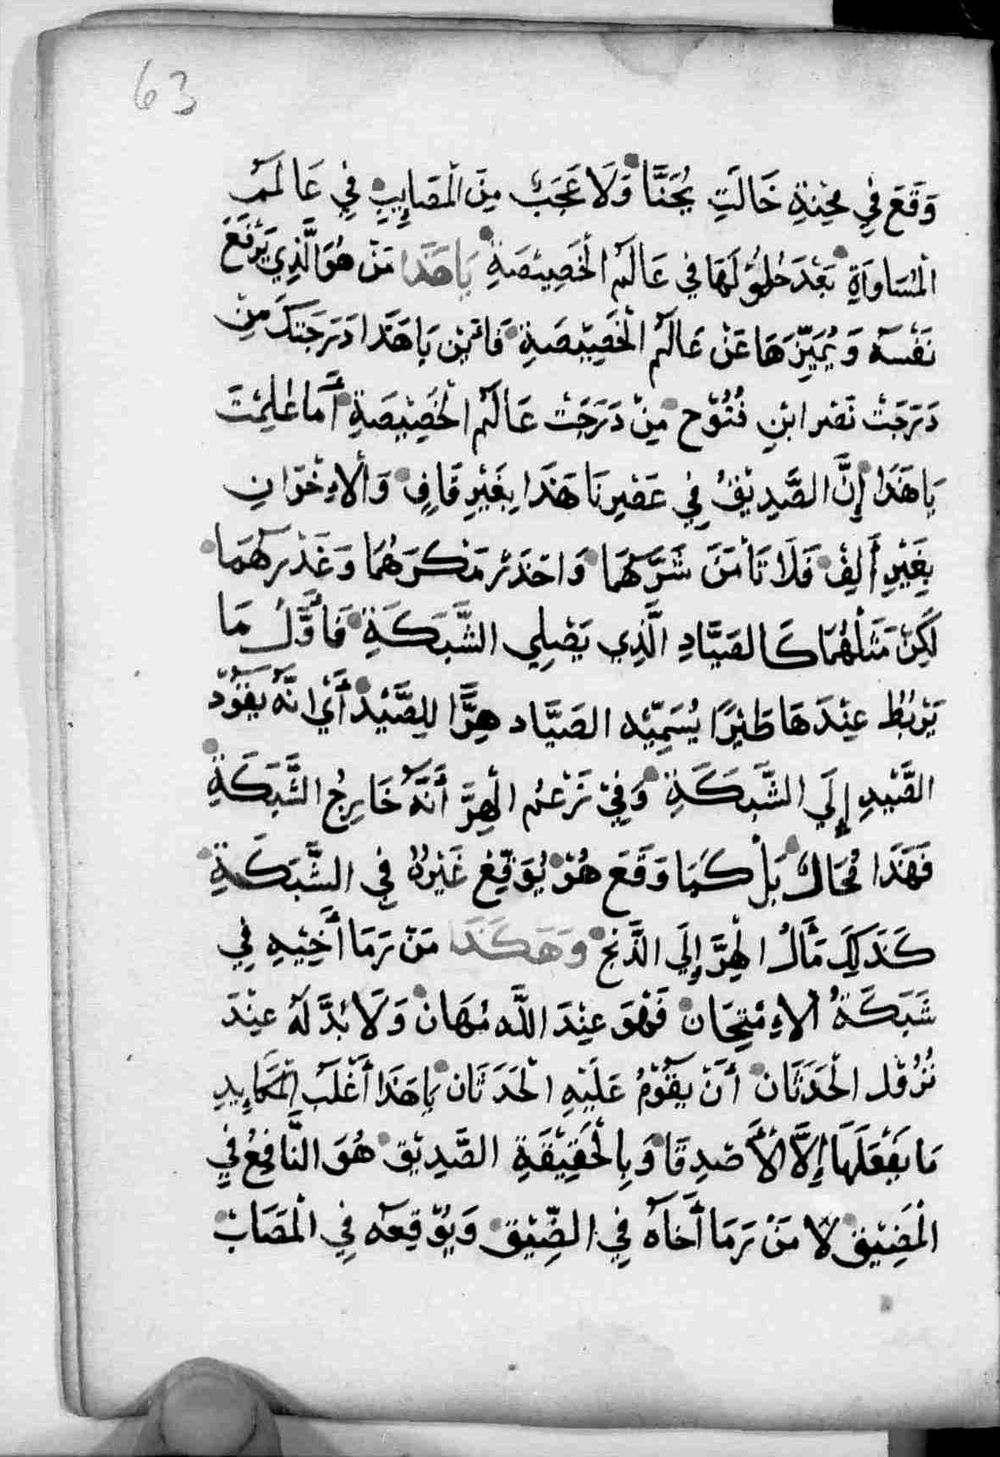 63
وَقَعَ فِي مِحْنِةِ خَالَتِ يُحَنَّا وَلَا عَجَبَ مِنَ الْمَصَايِبِ فِي عَالَمِ
الْمُسَاوَاةِ بَعْدَ حُلُوُلَهَا فِي عَالَمِ الْخَصِيْصَةِ يَاهَذَا مَنْ هُوَ الَّذِي يَرْفَعْ
نَفْسَهْ وَيُمَيِّزْهَا عَنْ عَالَمِ الْخَصِيْصَةِ فَائَيْنِ يَاهَذَا دَرَجَتَكَ مِنْ
دَرَجَتْ نَصْر ابْنِ فُتُوْح مِنْ دَرَجَتْ عَالَمِ الْخَصِيْصَةِ أَمَا عْلِمْتَ
يَاهَذَا إِنَّ الصَّدِيْقْ فِي عَصْرِنَا هَذَا بِغَيْرِ قَافٍ وَالْاءِخْوَانِ
بِغَيْرِ أَلِفْ فَلَا تَأْمَنَ شَرَّهُمَا وَاحْذَرْ مَكْرَهُمَا وَغَدْرَهُمَا
لَكِنْ مَثَلْهُمَا كَالصَيَّادِ الَّذِي يَصْلِي الشَّبَكَةِ فَأَوَّلُ مَا
يَرْبُطْ عِنْدَهَا طَيْرًا يُسَمِّيْه الصَيَّاد هِرًّا لِلصَّيْدْ أَيْ انَّهُ يَقُوْدْ
الصَّيْدِ إِلَي الشَّبَكَةِ وَفِيْ زَعْمِ الْهِرَّ أَنَّهُ خَارِجُ الشَّبَكَةِ
فَهَذَا مُحَالٌ بَلْ كَمَا وَقَعَ هُوْ يُوَقِّعْ غَيْرُهْ فِي الشَّبَكَةِ
كَذَلِكَ مَأَلُ الْهِرَّ إِلَي الذَّبْحِ وَهَكَذَا مَنْ رَمَا أَخِيْهِ فِي
شَبَكَةُ الاءِمْتِحَان فَهْوَ عِنْدَ اللَّه مُهَانْ وَلَا بُدَّ لَهُ عِنْدَ
نُزُوْل الْحَدَثَانْ أَنْ يَقُوْمُ عَلَيْهِ الْحَدَثَان يَاهَذَا أَغْلَبْ الْمَكَايِدِ
مَا يَفْعَلَهَا إِلَّا الْأَصْدِقَا وَبِالْحَقِيْقَةِ الصَّدِيْقْ هُوَ النَّافِعُ فِيْ
الْمَضِيْقْ لَا مَنْ رَمَا أَخَاهُ فِي الضِّيْقْ وَيُوْقِعَهْ فِي الْمَصَابْ